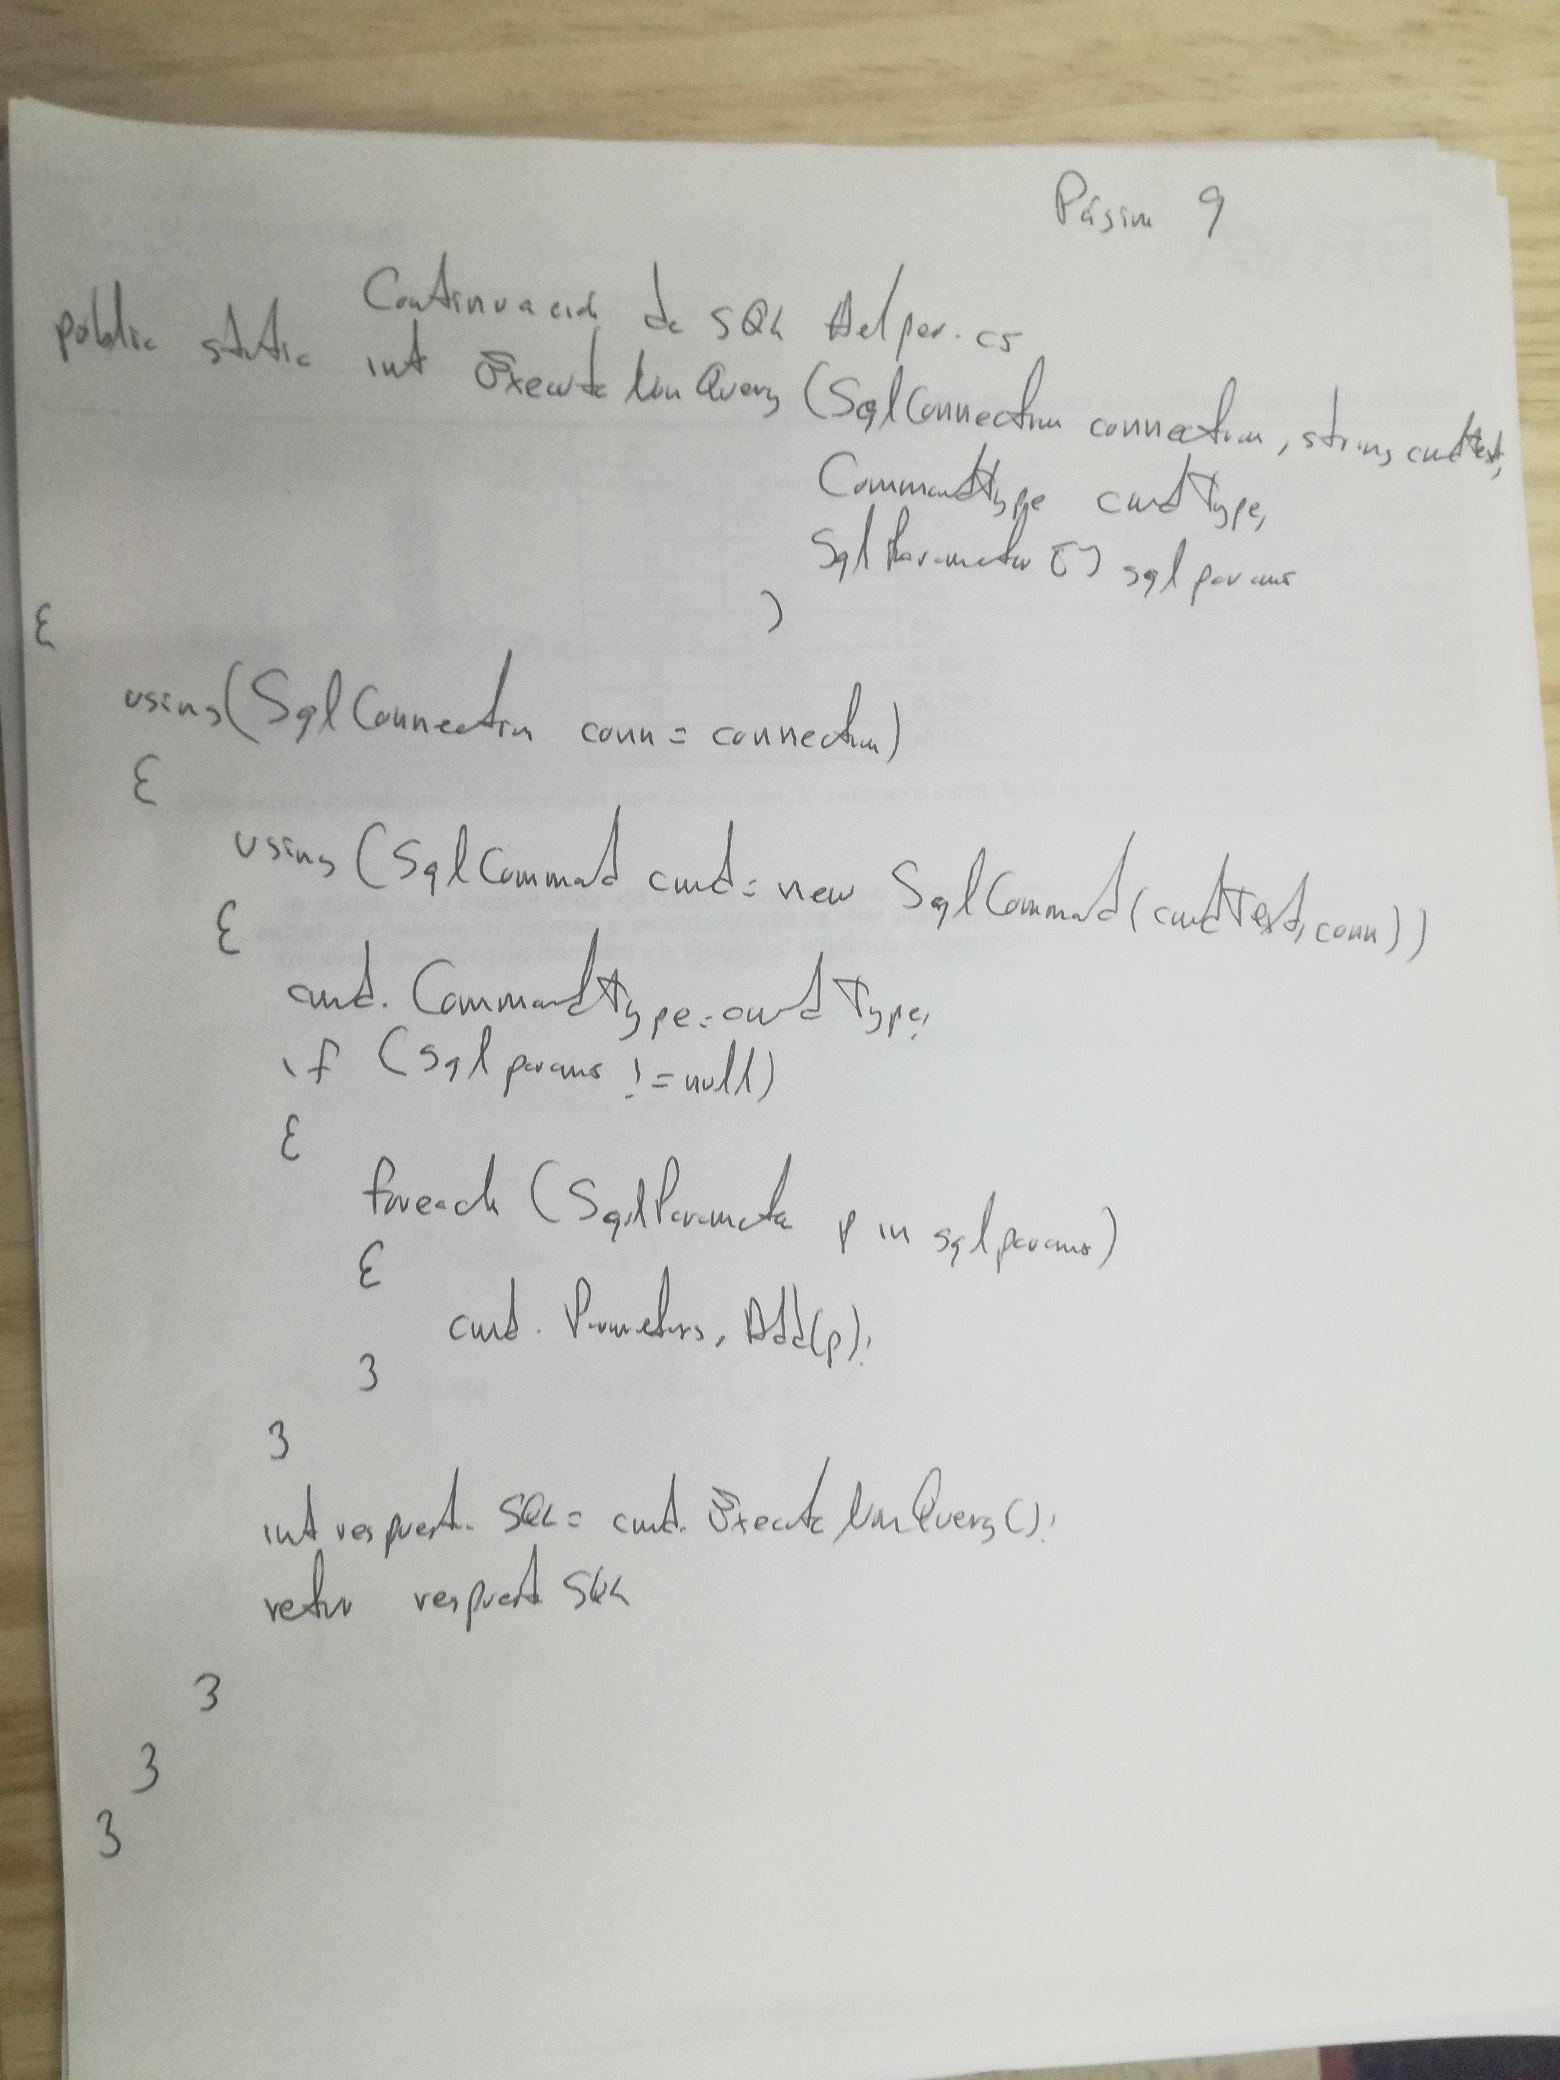 Página 9
Continuación de SQL Helper.cs
public static int ExecuteNonQuery (SqlConnection connection, string cmdText,
CommandType cmdType,
SqlParameter [] sqlparams
)
{
using(SqlConnection conn = connection)
{
using (SqlCommand cmd = new SqlCommand(cmdText, conn))
{
cmd. CommandType = cmdType;
if (sqlparams != null)
{
foreach (SqlParameter p in sqlparams)
{
cmd. Parameters. Add(p);
}
}
int respuesta SQL = cmd. ExecuteNonQuery();
return respuesta SQL
}
}
}